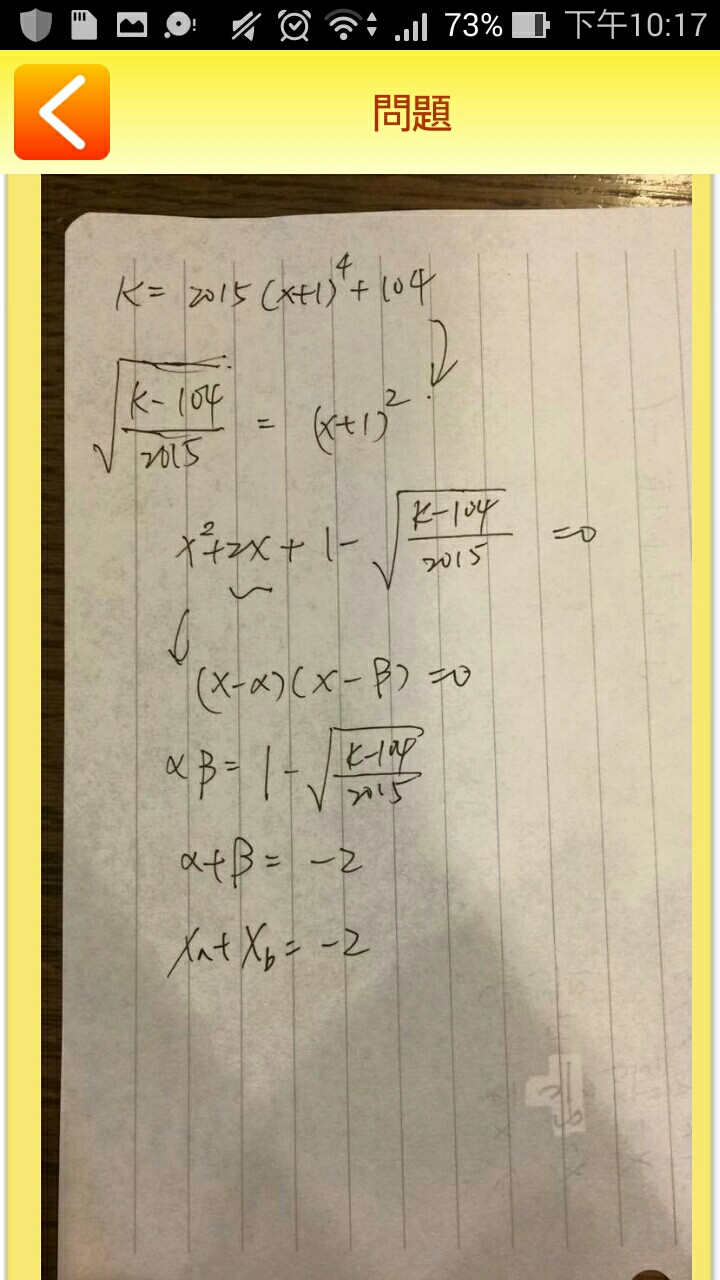 73% 下午10:17
問題
K = 2015 (x+1)^4 + 104
√((K-104)/2015) = (x+1)^2
x^2+2x + 1 - √((K-104)/2015) = 0
(x-α)(x-β) = 0
αβ = 1 - √((K-104)/2015)
α+β = -2
Xa+Xb = -2